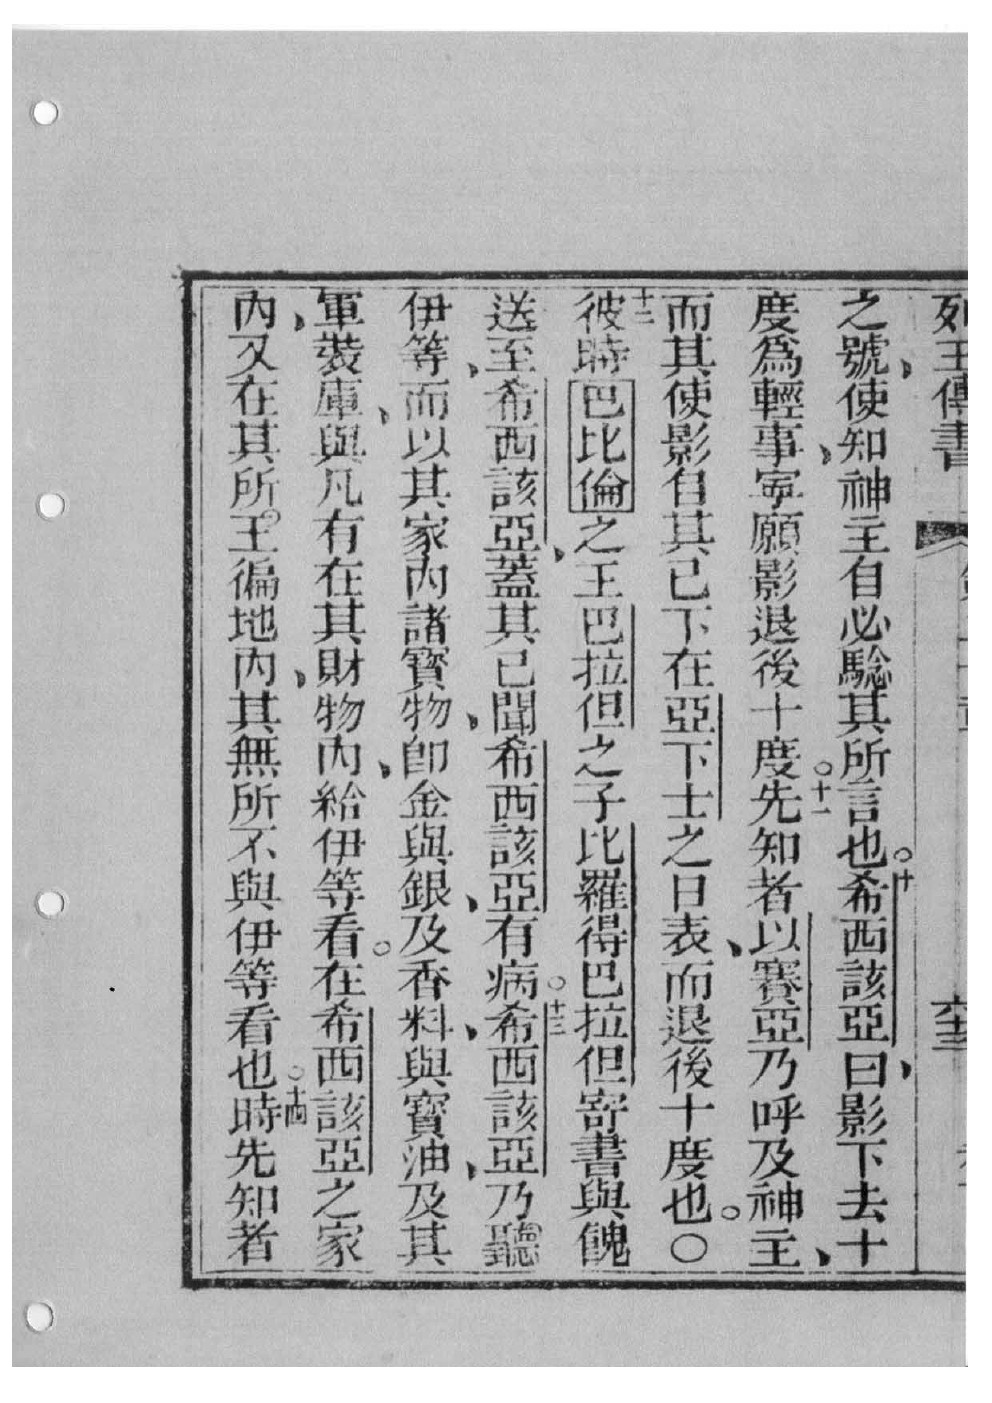 列王傳書 第二十章 六十三
之號、使知神主自必騐其所言也。十希西該亞曰、影下去十
度爲輕事、寕願影退後十度。十一先知者以賽亞乃呼及神主、
而其使影自其已下在亞下士之日表、而退後十度也。〇
十二彼時巴比倫之王巴拉但之子比羅得巴拉但寄書與餽
送至希西該亞、蓋其已聞希西該亞有病。十三希西該亞乃聽
伊等、而以其家內諸寳物、卽金與銀、及香料、與寳油、及其
軍裝庫、與凡有在其財物內、給伊等看。在希西該亞之家
內、又在其所。王徧地內、其無所不與伊等看也。十四時先知者